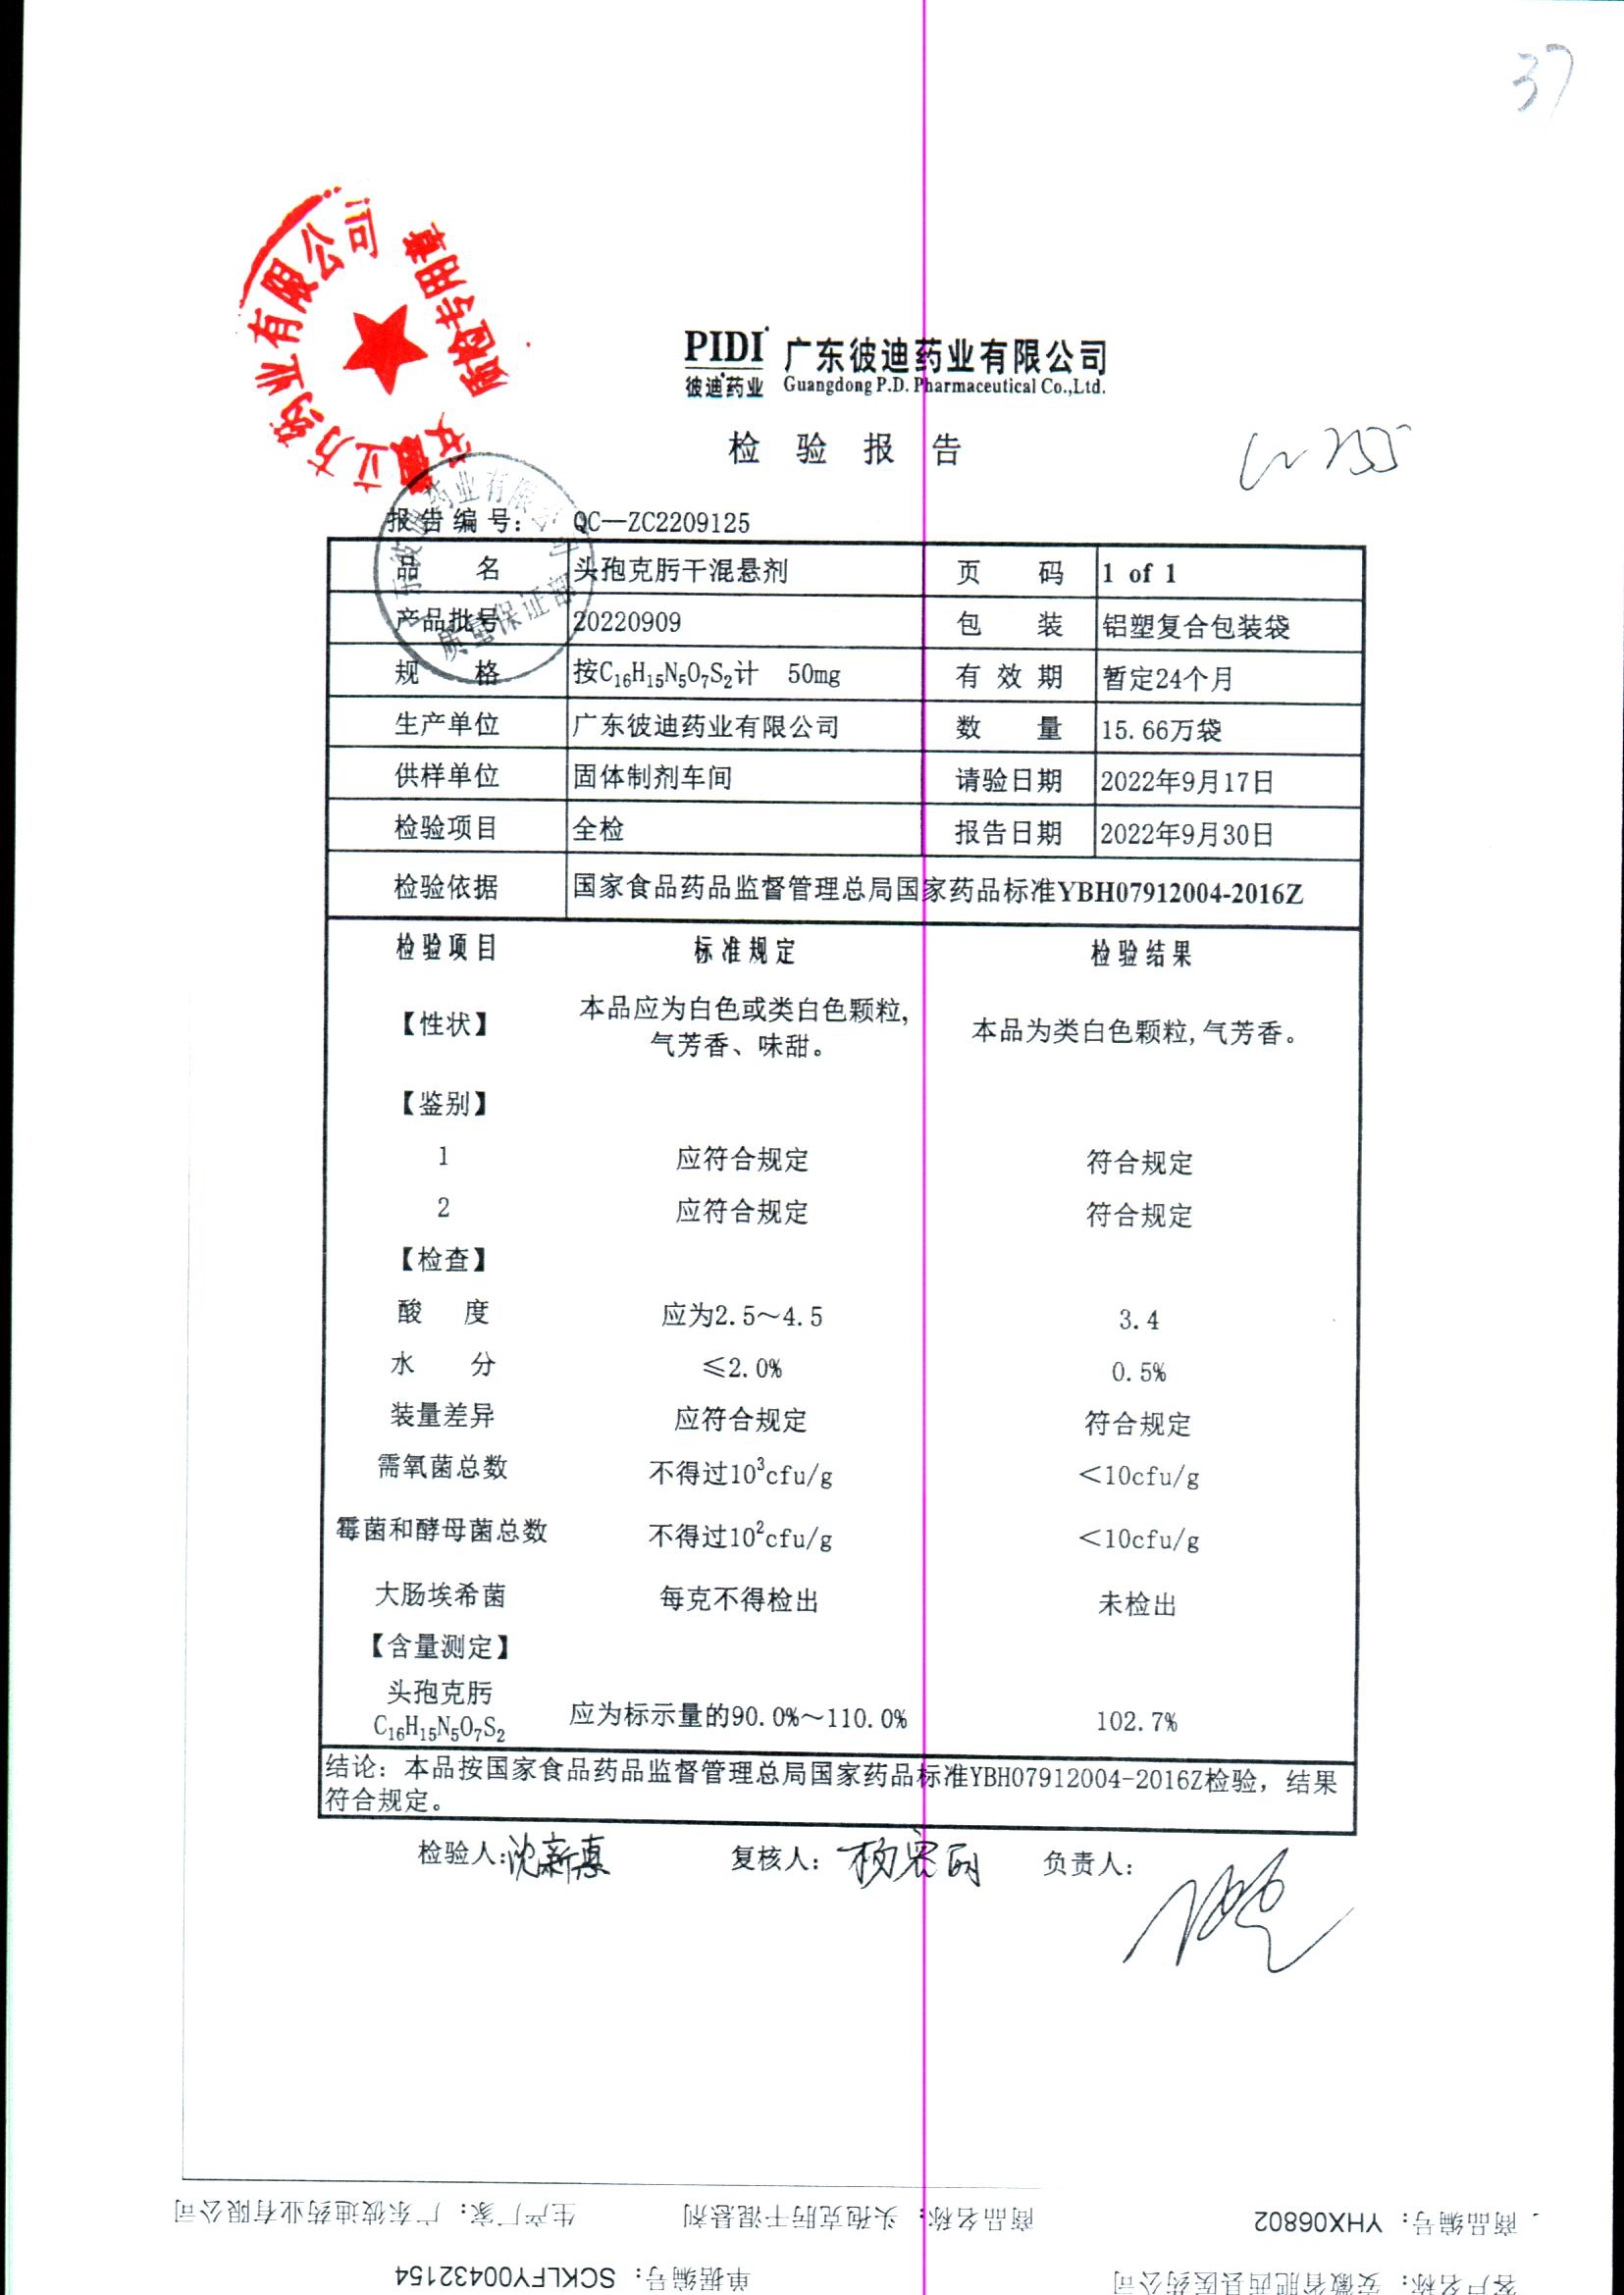 37
安徽立方药业有限公司
质检专用章
PIDI 广东彼迪药业有限公司
彼迪药业 Guangdong P.D. Pharmaceutical Co.,Ltd.
检 验 报 告
报告编号: QC—ZC2209125
东彼迪药业有限公司
质量保证部
品 名 头孢克肟干混悬剂 页 码 1 of 1
产品批号 20220909 包 装 铝塑复合包装袋
规 格 按C₁₆H₁₅N₅O₇S₂计 50mg 有 效 期 暂定24个月
生产单位 广东彼迪药业有限公司 数 量 15.66万袋
供样单位 固体制剂车间 请验日期 2022年9月17日
检验项目 全检 报告日期 2022年9月30日
检验依据 国家食品药品监督管理总局国家药品标准YBH07912004-2016Z
检验项目 标准规定 检验结果
【性状】 本品应为白色或类白色颗粒,
气芳香、味甜。 本品为类白色颗粒,气芳香。
【鉴别】
1 应符合规定 符合规定
2 应符合规定 符合规定
【检查】
酸 度 应为2.5～4.5 3.4
水 分 ≤2.0% 0.5%
装量差异 应符合规定 符合规定
需氧菌总数 不得过10³cfu/g <10cfu/g
霉菌和酵母菌总数 不得过10²cfu/g <10cfu/g
大肠埃希菌 每克不得检出 未检出
【含量测定】
头孢克肟
C₁₆H₁₅N₅O₇S₂ 应为标示量的90.0%～110.0% 102.7%
结论: 本品按国家食品药品监督管理总局国家药品标准YBH07912004-2016Z检验, 结果
符合规定。
检验人: 沈新惠 复核人: 负责人:
商品编号: YHX06802 商品名称: 头孢克肟干混悬剂 生产厂家: 广东彼迪药业有限公司
客户名称: 安徽省肥西县医药公司 单据编号: SCKLFY00432154